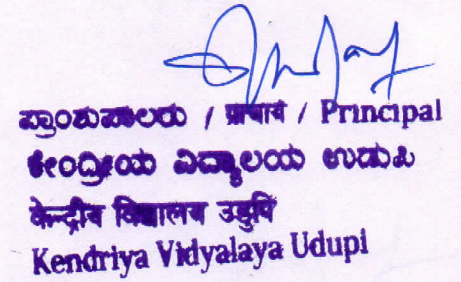 ಪ್ರಾಂಶುಪಾಲರು / प्राचार्य / Principal
ಕೇಂದ್ರೀಯ ವಿದ್ಯಾಲಯ ಉಡುಪಿ
केन्द्रीय विद्यालय उडुपि
Kendriya Vidyalaya Udupi